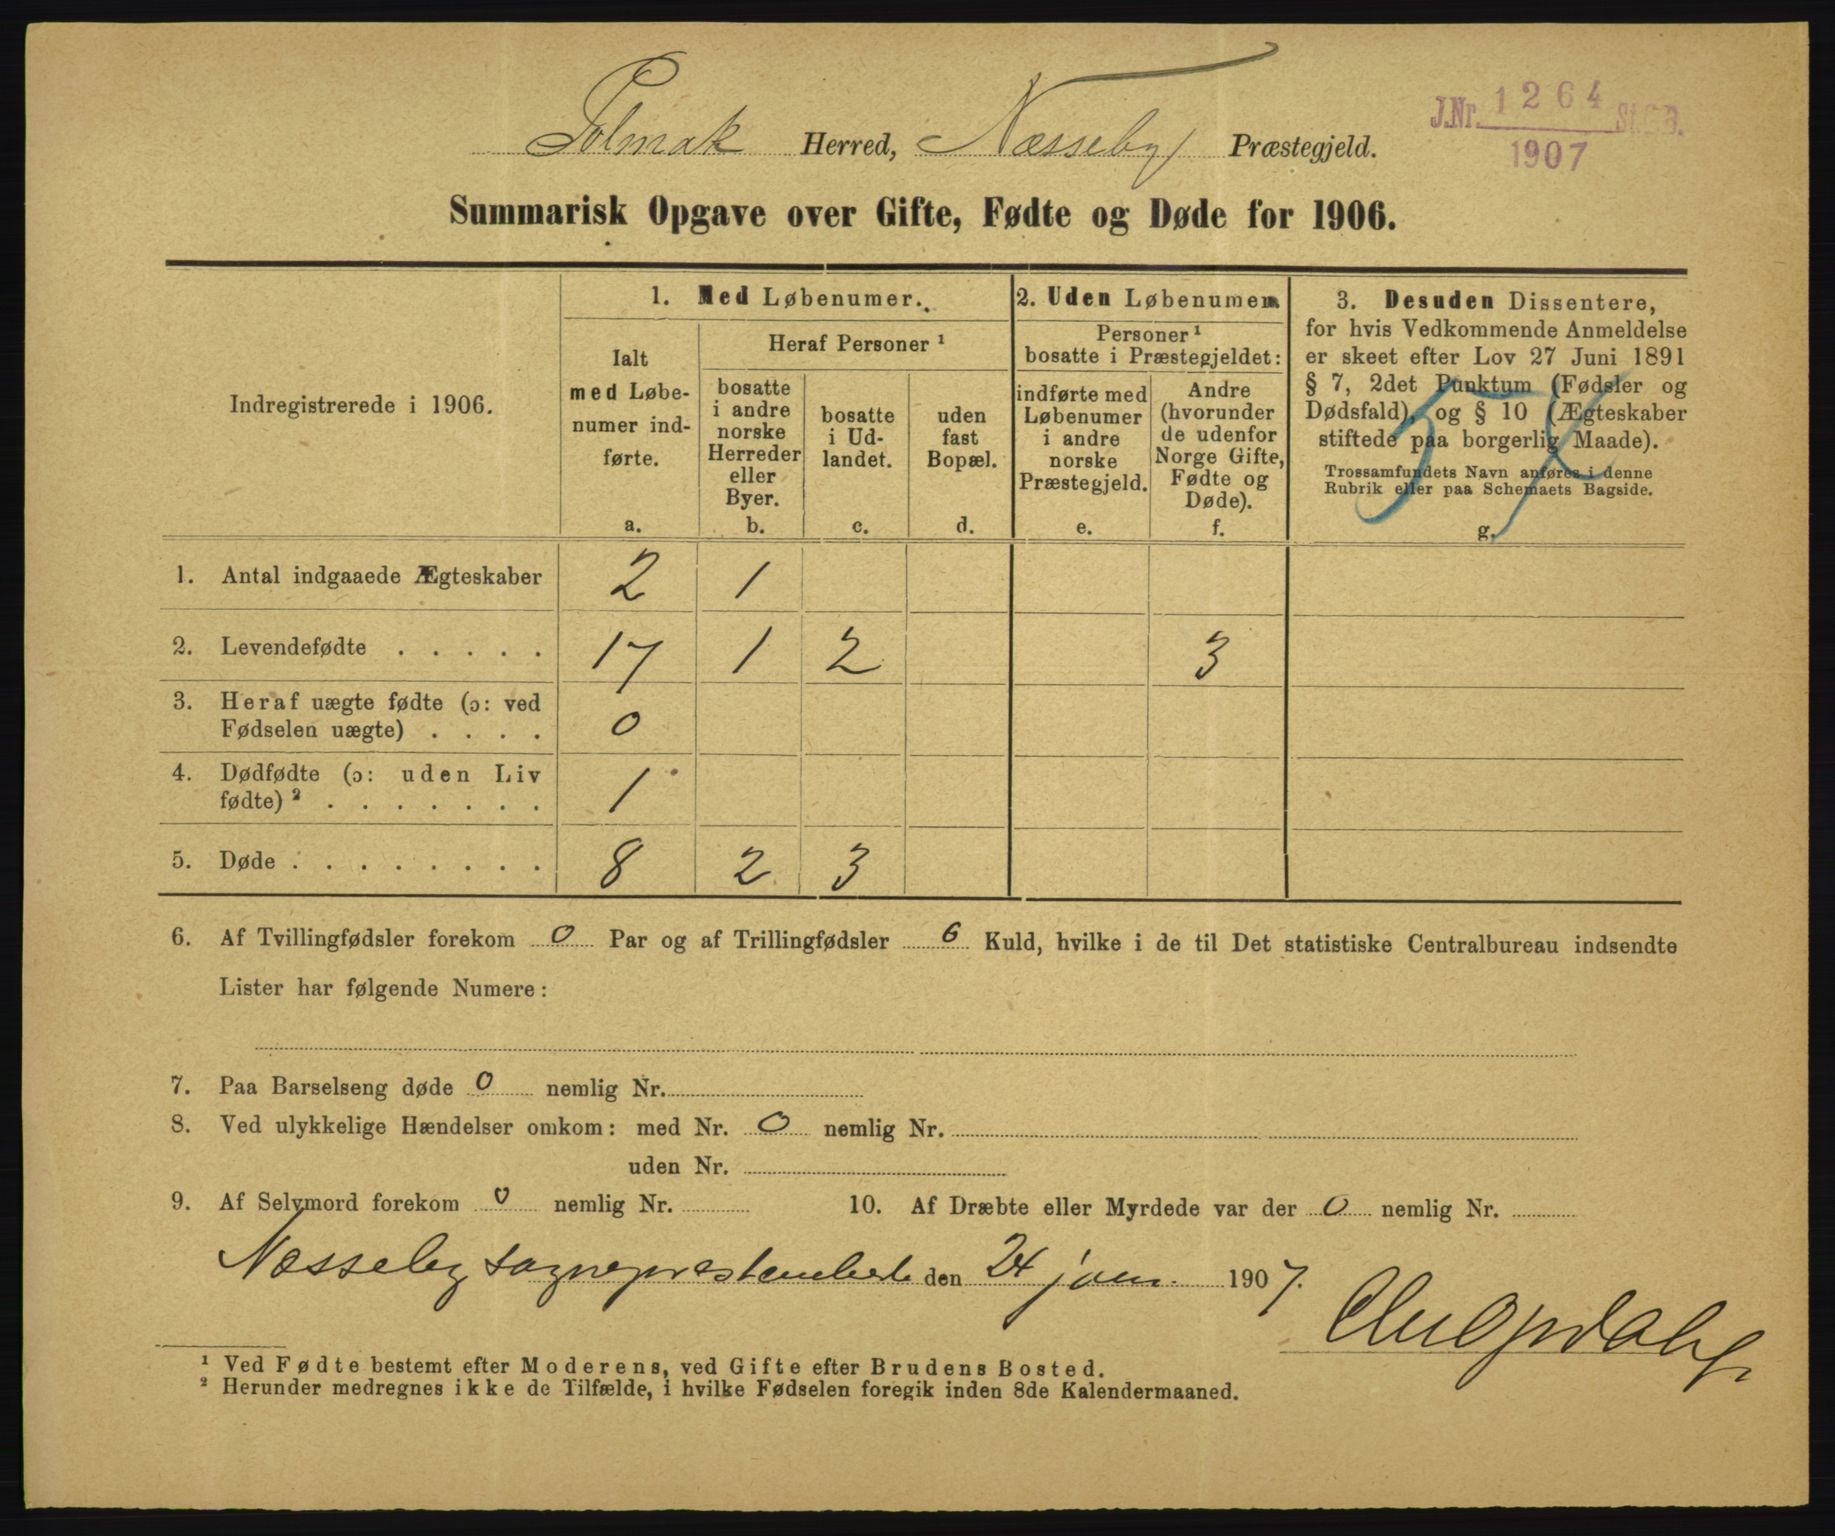 Polmak Herred, Næsseby Præstegjeld.
J.Nr. 1264 St.C.B.
1907
Summarisk Opgave over Gifte, Fødte og Døde for 1906.
Indregistrerede i 1906.
1. Med Løbenumer.
Ialt
med Løbe-
numer ind-
førte.
a.
Heraf Personer ¹
bosatte
i andre
norske
Herreder
eller
Byer.
b.
bosatte
i Ud-
landet.
c.
uden
fast
Bopæl.
d.
2. Uden Løbenumer
Personer ¹
bosatte i Præstegjeldet:
indførte med
Løbenumer
i andre
norske
Præstegjeld.
e.
Andre
(hvorunder
de udenfor
Norge Gifte,
Fødte og
Døde).
f.
3. Desuden Dissentere,
for hvis Vedkommende Anmeldelse
er skeet efter Lov 27 Juni 1891
§ 7, 2det Punktum (Fødsler og
Dødsfald), og § 10 (Ægteskaber
stiftede paa borgerlig Maade).
Trossamfundets Navn anføres i denne
Rubrik eller paa Schemaets Bagside.
g.
1. Antal indgaaede Ægteskaber 2 1
2. Levendefødte . . . . . 17 1 2 3
3. Heraf uægte fødte (ɔ: ved
Fødselen uægte) . . . . 0
4. Dødfødte (ɔ: uden Liv
fødte) ² . . . . . . . 1
5. Døde . . . . . . . . 8 2 3
6. Af Tvillingfødsler forekom 0 Par og af Trillingfødsler 6 Kuld, hvilke i de til Det statistiske Centralbureau indsendte
Lister har følgende Numere:
7. Paa Barselseng døde 0 nemlig Nr.
8. Ved ulykkelige Hændelser omkom: med Nr. 0 nemlig Nr.
uden Nr.
9. Af Selvmord forekom 0 nemlig Nr. 10. Af Dræbte eller Myrdede var der 0 nemlig Nr.
Næsseby sogneprestembede den 24 jan. 1907.
Opdahl
¹ Ved Fødte bestemt efter Moderens, ved Gifte efter Brudens Bosted.
² Herunder medregnes ikke de Tilfælde, i hvilke Fødselen foregik inden 8de Kalendermaaned.